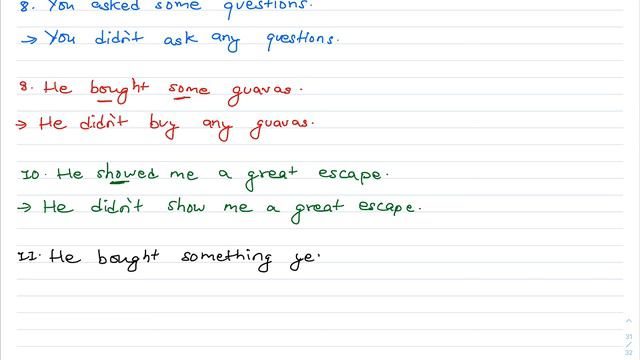 8. You asked some questions.
→ You didn't ask any questions.
8. He bought some guavas.
→ He didn't buy any guavas.
10. He showed me a great escape.
→ He didn't show me a great escape.
11. He bought something ye.
31
/
32